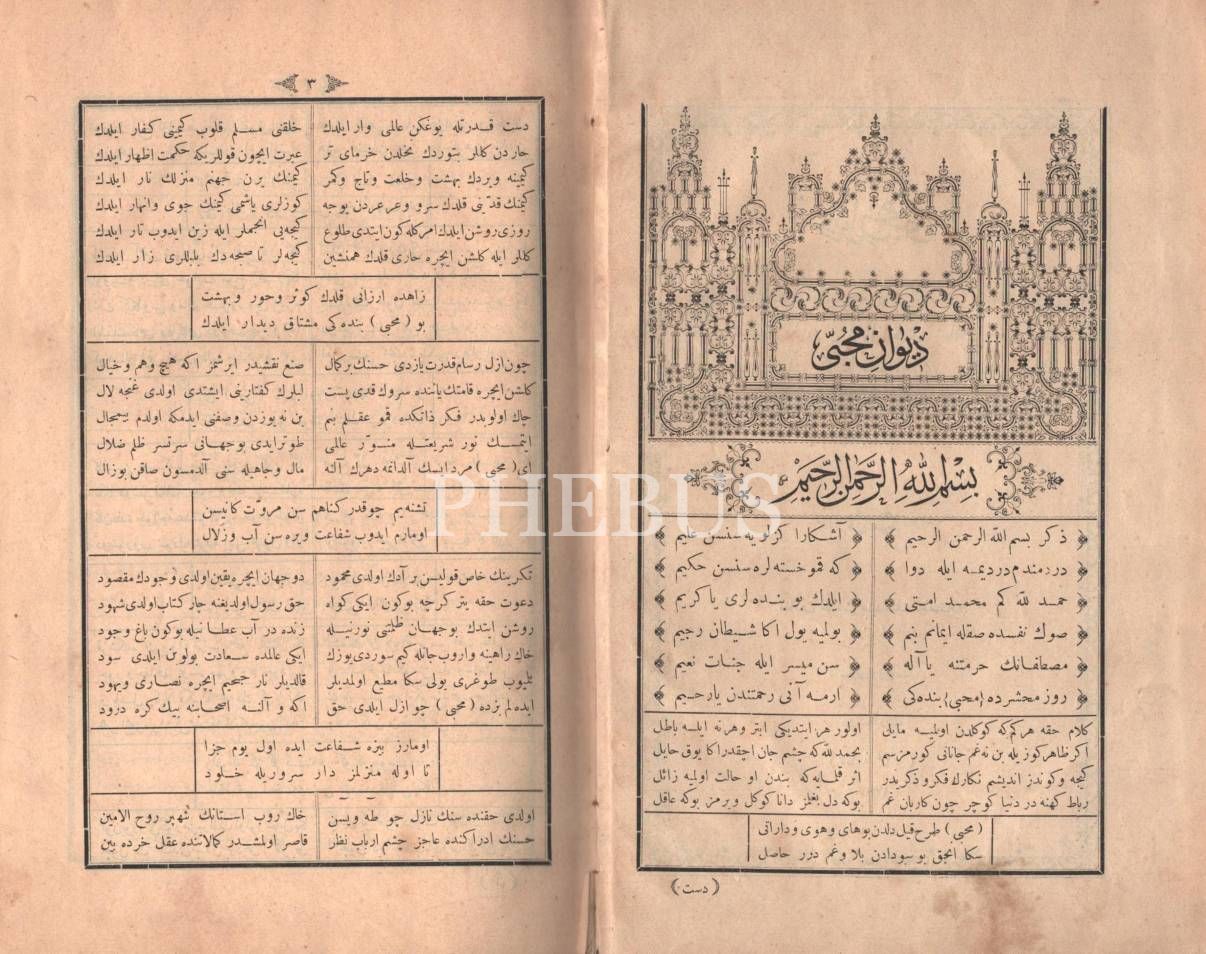 ديوان محبّى
بسم الله الرحمن الرحيم
ذكر بسم الله الرحمن الرحيم آشكارا كزلو يه سنسن عليم
دردمندم دردیمه ایله دوا كه قمو خسته لره سنسن حكيم
حمد لله كم محمد امتى ايلدك بو بنده لرى يا كريم
صوك نفسده صقله ايمانم بنم بولميه يول اكا شيطان رجيم
مصطفانك حرمتنه يا آله سن ميسر ايله جنات نعيم
روز محشرده (محبى) بنده كى ايرمه آنى رحمتندن يا رحيم
كلام حقه هركم كه كوكلدن اولميه مايل اولور هر ايتديكى ابتر و هر نه ايلسه باطل
اكر ظاهر كوزيله بن نه غم جانانى كورمزسم بحمد لله كه چشم جان اچقدر اكا يوق حايل
كيجه و كوندز انديشم نكارك فكر و ذكريدر اثر قلمايه كه بندن او حالت اولميه زائل
رباط كهنه در دنيا كوچر چون كاربان غم بوكه دل بغلمز دانا كوكل ويرمز بوكه عاقل
(محبى) طرح قيل دلدن بو هاى و هوى و دارانى
سكا انجق بو سودادن بلا و غم درر حاصل
(دست)
٣
دست قدرتله يوغكن عالمى وار ايلدك خلقنى مسلم قلوب كيمينى كفار ايلدك
خاردن كللر بتوردك نخلدن خرماى تر عبرت ايچون قوللريكه حكمت اظهار ايلدك
كيمينه ويردك بهشت و خلعت و تاج و كمر كيمنك يرن جهنم منزلك نار ايلدك
كيمنك قدينى قلدك سرو و عرعردن يوجه كوزلرى ياشمى كيمنك جوى و انهار ايلدك
روزى روشن ايلدك امركله كون ايتدى طلوع كيجه يى انجملر ايله زين ايدوب تار ايلدك
كللر ايله كلشن ايچره خارى قلدك همنشين كيجه لر تا صبحه دك بلبللرى زار ايلدك
زاهده ارزانى قلدك كوثر و حور و بهشت
بو (محبى) بنده كى مشتاق ديدار ايلدك
چون ازل رسام قدرت يازدى حسنك بر كمال صنع نقشيدر ايرشمز اكه هيچ وهم و خيال
كلشن ايچره قامتك ياننده سروك قدى پست لبلرك كفتارينى ايشتدى اولدى غنچه لال
چاك اولوبدر فكر ذاتكده قمو عقلم بنم بن نه يوزدن وصفنى ايدمكه اولدم بيمجال
ايتمسك نور شريعتله منور عالمى طوتريدى بو جهانى سرتسر ظلم ضلال
اى (محبى) مرد ايسك آلدانمه دهرك آلنه مال و جاهيله سنى آلدمسون صاقن بو زال
تشنه يم چوقدر كناهم سن مروت كانيسن
اومارم ايدوب شفاعت ويره سن آب و زلال
تكرينك خاص قوليسن بر آدك اولدى محمود دو جهان ايچره يقين اولدى وجودك مقصود
دعوت حقه يتر كرچه بوكون ايكى كواه حق رسول اولديغنه چار كتاب اولدى شهود
روشن ايتدك بو جهان ظلمتنى نورنيله زنده در آب عطا نيله بوكون باغ وجود
خاك راهينه واروب جانله كيم سوردى يوزك ايكى عالمده سعادت بولوبن ايلدى سود
بيليوب طوغرى يولى سكا مطيع اولمديلر قالديلر نار جحيم ايچره نصارى و يهود
ايده لم بزده (محبى) چو ازل ايلدى حق اكه و آلنه اصحابنه بيك كره درود
اومارز بيزه شفاعت ايده اول يوم جزا
تا اوله منزلمز دار سروريله خلود
اولدى حقنده سنك نازل چو طه و يسن خاك روب استانك شهپر روح الامين
حسنك ادراكنده عاجز چشم ارباب نظر قاصر اولمشدر كمالاتنده عقل خرده بين
PHEBUS